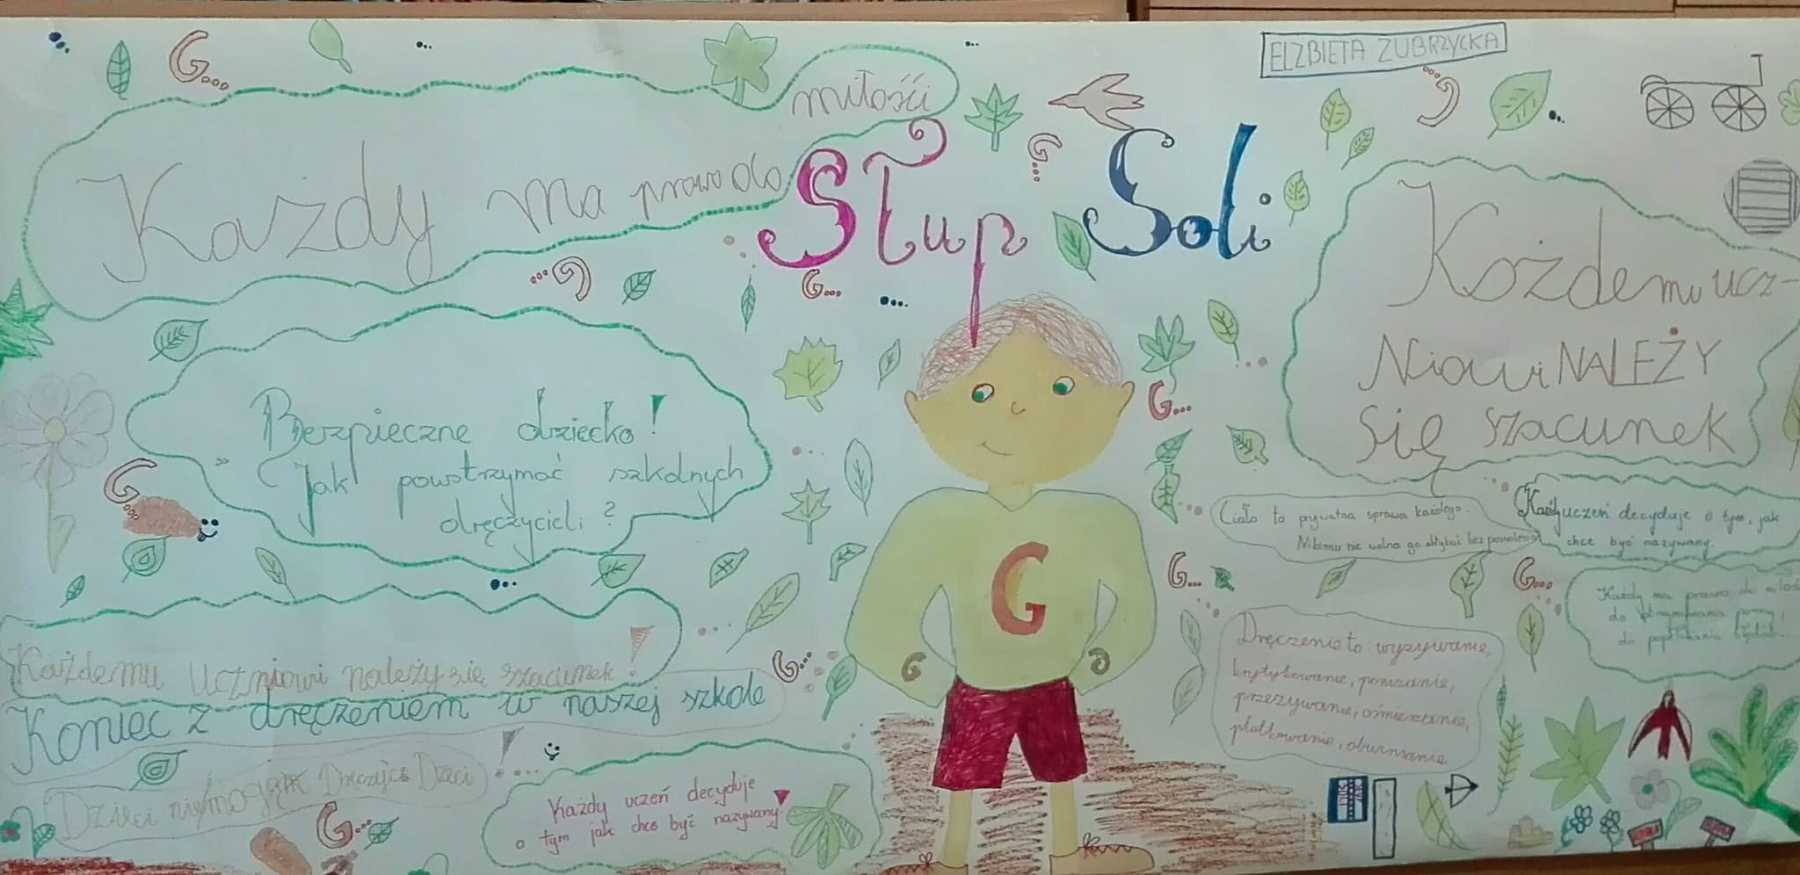 ELZBIETA ZUBRZYCKA
Słup Soli
G...
miłości
Każdy ma prawo do
Bezpieczne dziecko!
Jak powstrzymać szkolnych
dręczycieli ?
Każdemu Uczniowi należy się szacunek!
Koniec z dręczeniem w naszej szkole
Każdy uczeń decyduje
o tym jak chce być nazywany
G
Każdemu ucz-
Niowi NALEŻY
się szacunek
Ciało to prywatna sprawa każdego.
Nikomu nie wolno go
Każdy uczeń decyduje o tym, jak
chce być nazywany
Każdy ma prawo do
do
do
Dręczenie to: wyzywanie,
krytykowanie, poniżanie,
przezywanie, ośmieszanie,
plotkowanie, obwinianie